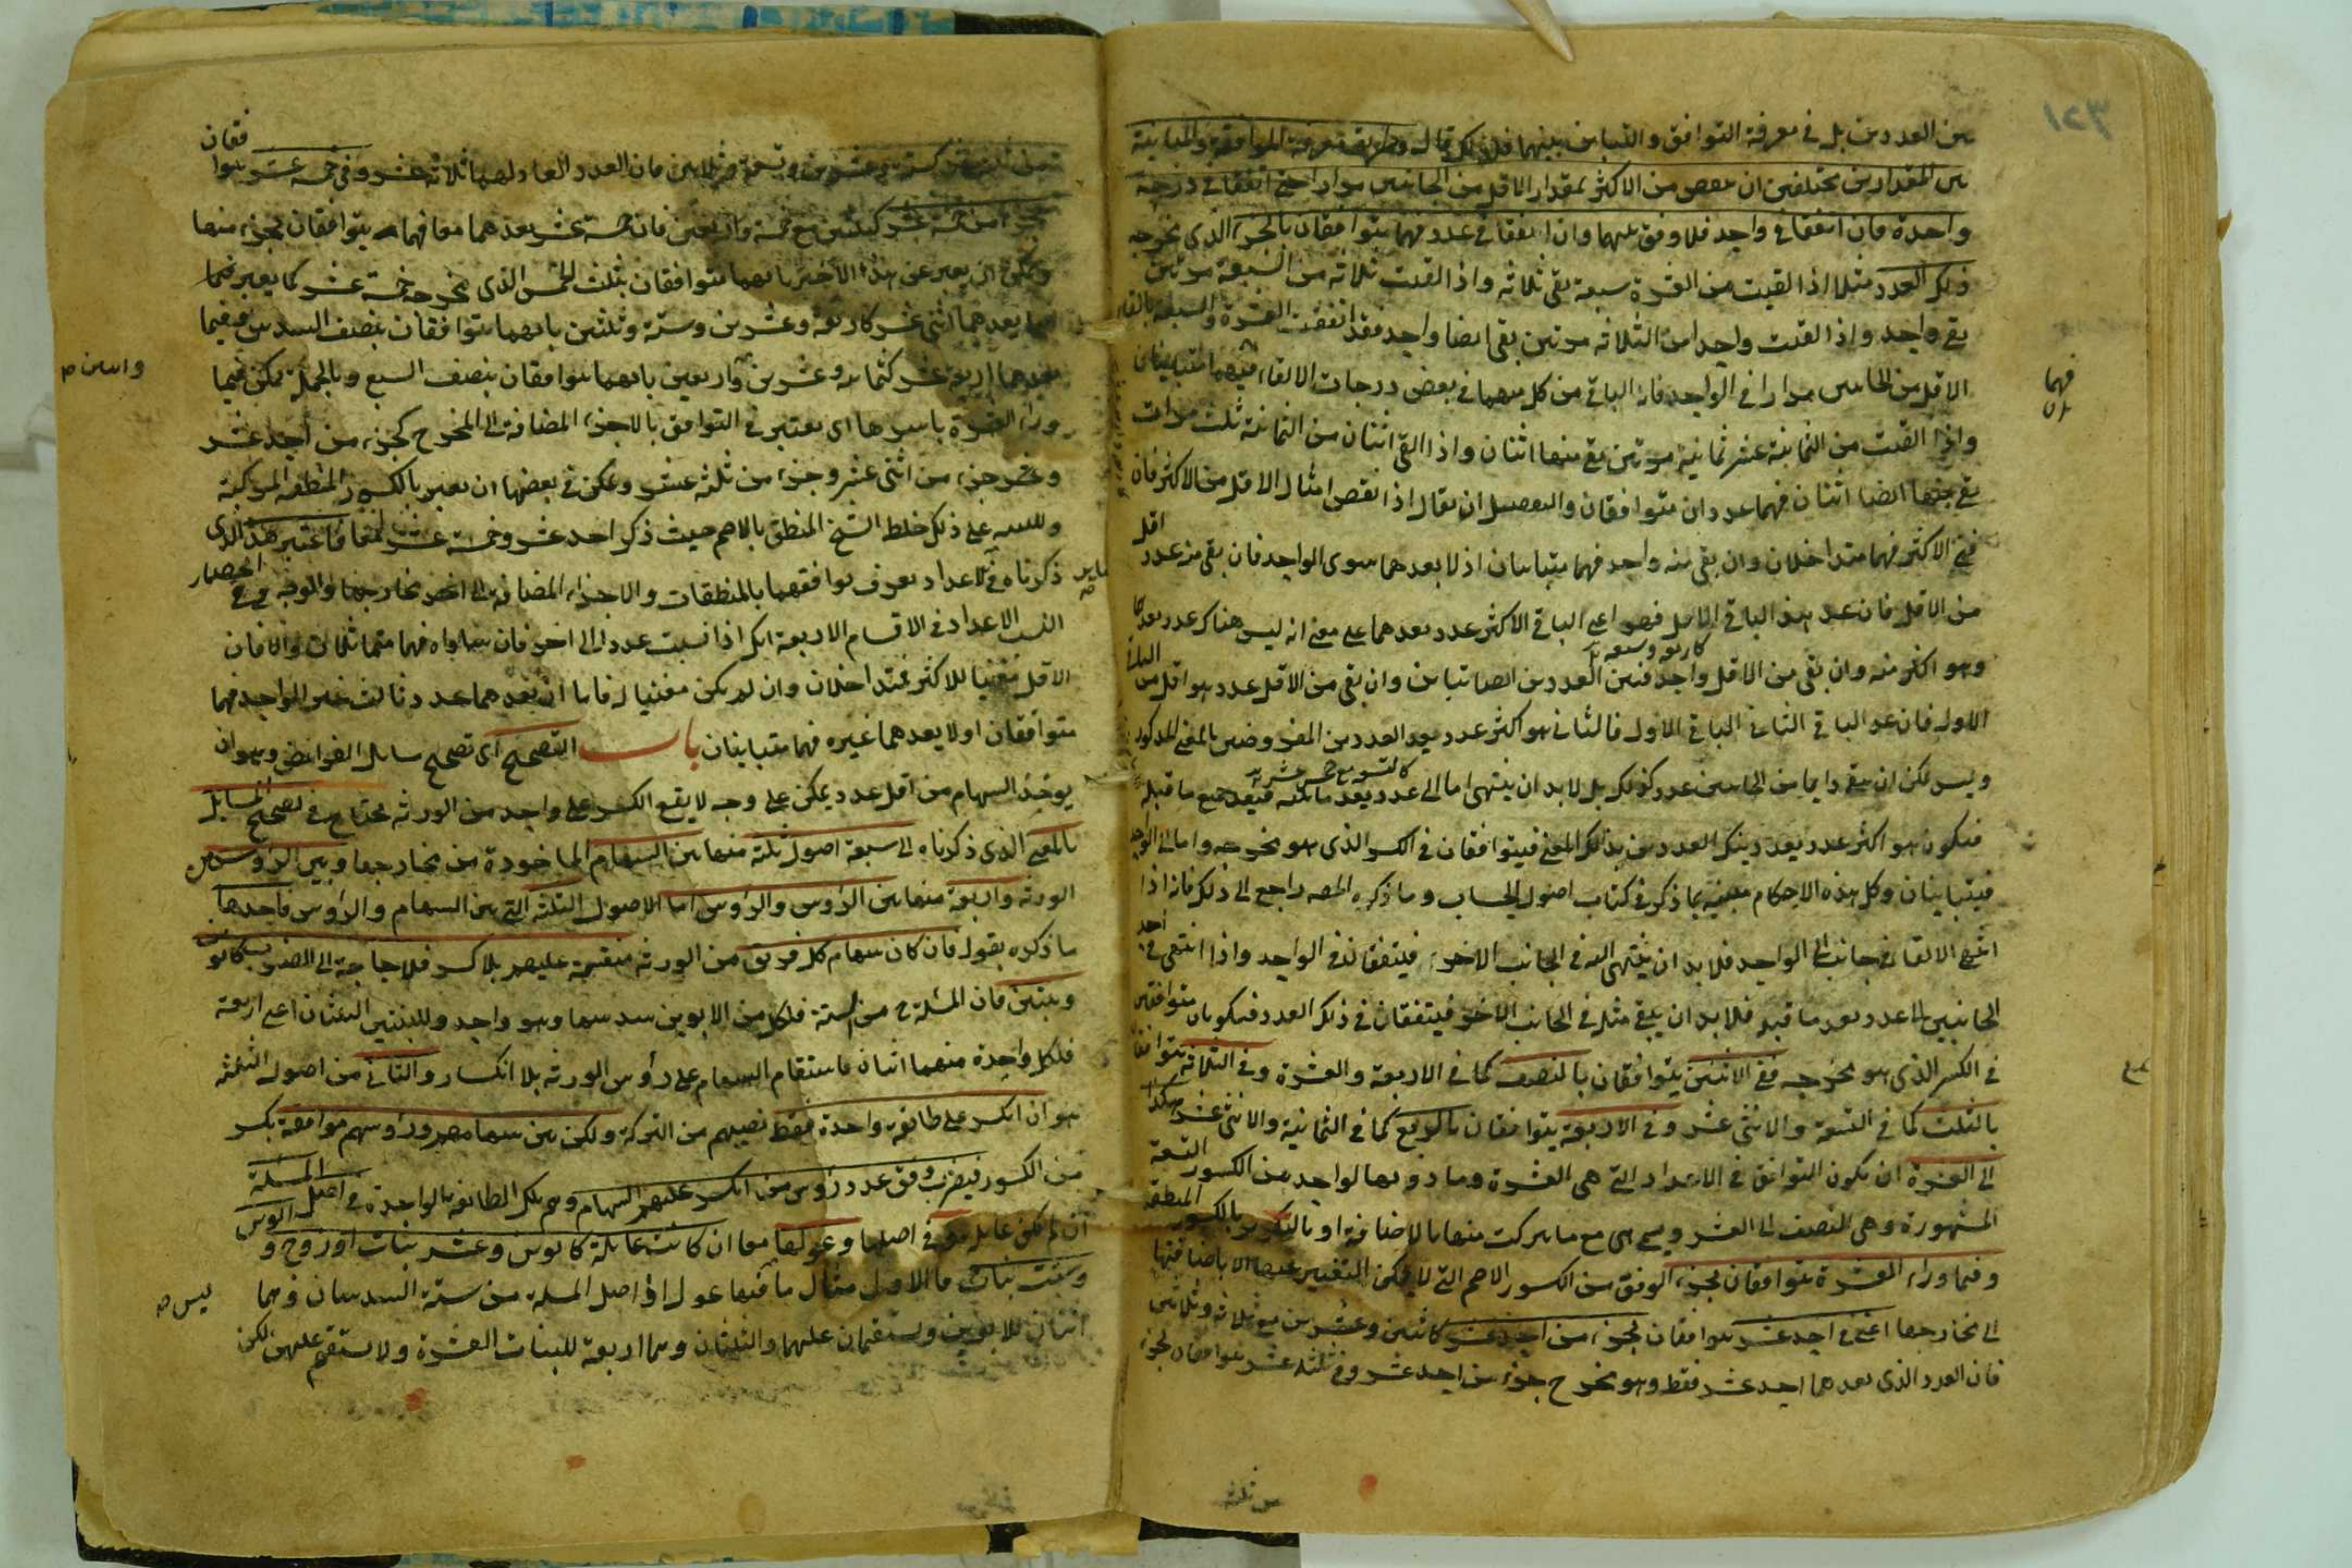 بين العددين بل في معرفة التوافق والتباين بينهما فلذلك قال وطريق معرفة الموافقة والمباينة
بين المقدارين مختلفين ان ينقص من الاكثر بمقدار الاقل من الجانبين مرارا حتى اتفقا في درجة
واحدة فان اتفقا في واحد فلا وفق بينهما وان اتفقا في عدد فهما متوافقان بالجزء الذي مخرجه
ذلك العدد مثلا اذا القيت من العشرة سبعة بقي ثلاثة واذا القيت ثلاثة من السبعة مرتين
بقي واحد واذا القيت واحدا من الثلاثة مرتين بقي ايضا واحد فقد اتفقت العشرة والسبعة بالقاء
الاقل من الجانبين مرارا في الواحد فانه الباقي من كل منهما في بعض درجات الالقاء فهما متباينان
واذا القيت من الثمانية عشر ثمانية مرتين بقي منها اثنان واذا القي اثنان من الثمانية ثلث مرات
بقي منها ايضا اثنان فهما عددان متوافقان والتفصيل ان يقال اذا نقص امثال الاقل من الاكثر فان
فني الاكثر فهما متداخلان وان بقي منه واحد فهما متباينان اذ لا يعدهما سوى الواحد فان بقي منه عدد اقل
من الاقل فان عد هذا الباقي الاقل فهو اعني الباقي الاكثر عدد يعدهما على معنى انه ليس هناك عدد يعدهما
وهو اكثر منه وان بقي من الاقل واحد فبين العددين ايضا تباين وان بقي من الاقل عدد هو اقل من
كاربعة وسبعة
الاول فان عد الباقي الثاني الباقي الاول فالثاني هو اكثر عدد يعد العددين المفروضين بالمعنى المذكور
وليس يمكن ان يبقى دايما من الجانبين عدد كذلك بل لا بد ان ينتهي اما الى عدد يعد ما قبله فيعد جميع ما قبله
فيكون هو اكثر عدد يعد ذينك العددين بذلك المعنى فيتوافقان في الكسر الذي هو مخرجه واما الى الواحد
فيتباينان وكل هذه الاحكام مبينة بما ذكر في كتاب اصول الحساب وما ذكره المصه راجع الى ذلك فانه اذا
انتهى الالقاء في جانب الى الواحد فلا بد ان ينتهي اليه في الجانب الاخر فيتفقان في الواحد واذا انتهى في احد
الجانبين الى عدد يعد ما قبله فلا بد ان يبقى مثله في الجانب الاخر فيتفقان في ذلك العدد فيكونان متوافقين
في الكسر الذي هو مخرجه ففي الاثنين يتوافقان بالنصف كما في الاربعة والعشرة وفي الثلاثة يتوافقان
بالثلث كما في التسعة والاثنى عشر وفي الاربعة يتوافقان بالربع كما في الثمانية والاثنى عشر هكذا
الى العشرة ان يكون التوافق في الاعداد التي هي العشرة وما دونها لواحد من الكسور التسعة
المشهورة وهي النصف الى العشر وهي مع ما تركب منها بالاضافة او بالتكرير بالكسور المنطقة
وفيما وراء العشرة يتوافقان بجزء الوفق من الكسور الاصم التي لا يمكن التعبير عنها الا باضافتها
الى مخارجها اعني في احد عشر يتوافقان بجزء من احد عشر كاثنين وعشرين مع ثلاثة وثلاثين
فان العدد الذي يعدهما احد عشر فقط وهو مخرج جزء من احد عشر وفي ثلثة عشر يتوافقان بجزء
فهما
من ثلثة
فان العدد العاد لهما ثلاثة عشر وفي خمسة عشر يتوافقان
بجزء من خمسة عشر كثلثين مع خمسة واربعين فان خمسة عشر يعدهما معا فهما يتوافقان بجزء منها
ويمكن ان يعبر عن هذا الاخير بانهما متوافقان بثلث الخمس الذي مخرجه خمسة عشر كما يعبر فيما
يعدهما اثنى عشر كاربعة وعشرين وستة وثلثين بانهما متوافقان بنصف السدس وفيما
يعدهما اربعة عشر كثمانية وعشرين واربعين بانهما متوافقان بنصف السبع وبالجملة يمكن فيما
وراء العشرة باسرها اي يعتبر في التوافق بالاجزاء المضافة الى المخرج كجزء من احد عشر
وجزء من اثنى عشر وجزء من ثلثة عشر ويمكن في بعضها ان يعبر بالكسور المنطقة المركبة
وللتنبيه على ذلك خلط الشيخ المنطق بالاصم حيث ذكر احد عشر وخمسة عشر فاعتبر هذا الذي
ذكرناه في الاعداد يعرف توافقهما بالمنطقات والاجزاء المضافة الى اخر مخارجها والوجه في اختصار
النسب الاعداد في الاقسام الاربعة انك اذا نسبت عددا الى اخر فان ساواه فهما متماثلان والا فان
الاقل مفنيا للاكثر فمتداخلان وان لم يكن مفنيا له فاما ان يعدهما عدد ثالث غير الواحد فهما
متوافقان او لا يعدهما غيره فهما متباينان باب التصحيح اي تصحيح مسائل الفرائض وهو ان
يوخذ السهام من اقل عدد يمكن على وجه لا يقع الكسر على واحد من الورثة يحتاج في تصحيح المسائل
بالمعنى الذي ذكرناه الى سبعة اصول ثلثة منها بين السهام الماخوذة من مخارجها وبين الرؤس من
الورثة واربعة منها بين الرؤس والرؤس اما الاصول الثلثة التي بين السهام والرؤس فاحدها
ما ذكره بقوله فان كان سهام كل فريق من الورثة منقسمة عليهم بلا كسر فلا حاجة الى الضرب كابوين
وبنتين فان المسئلة ح من الستة فلكل من الابوين سدسها وهو واحد وللبنتين الثلثان اعني اربعة
فلكل واحدة منهما اثنان فاستقام السهام على رؤس الورثة بلا انكسار والثاني من اصول الثلثة
هو ان انكسر على طائفة واحدة فقط نصيبهم من التركة ولكن بين سهامهم ورؤسهم موافقة بكسر
من الكسور فيضرب وفق عدد رؤس من انكسر عليهم السهام وهم تلك الطائفة الواحدة في اصل المسئلة
ان لم تكن عايلة وفي اصلها وعولها معا ان كانت عايلة كابوين وعشر بنات او زوج وابوين
وست بنات فالاول مثال ما فيها عول اذ اصل المسئلة من ستة السدسان وهما
اثنان للابوين ويستقيمان عليهما والثلثان وهما اربعة للبنات العشرة ولا يستقيم عليهن لكن
ليس صه